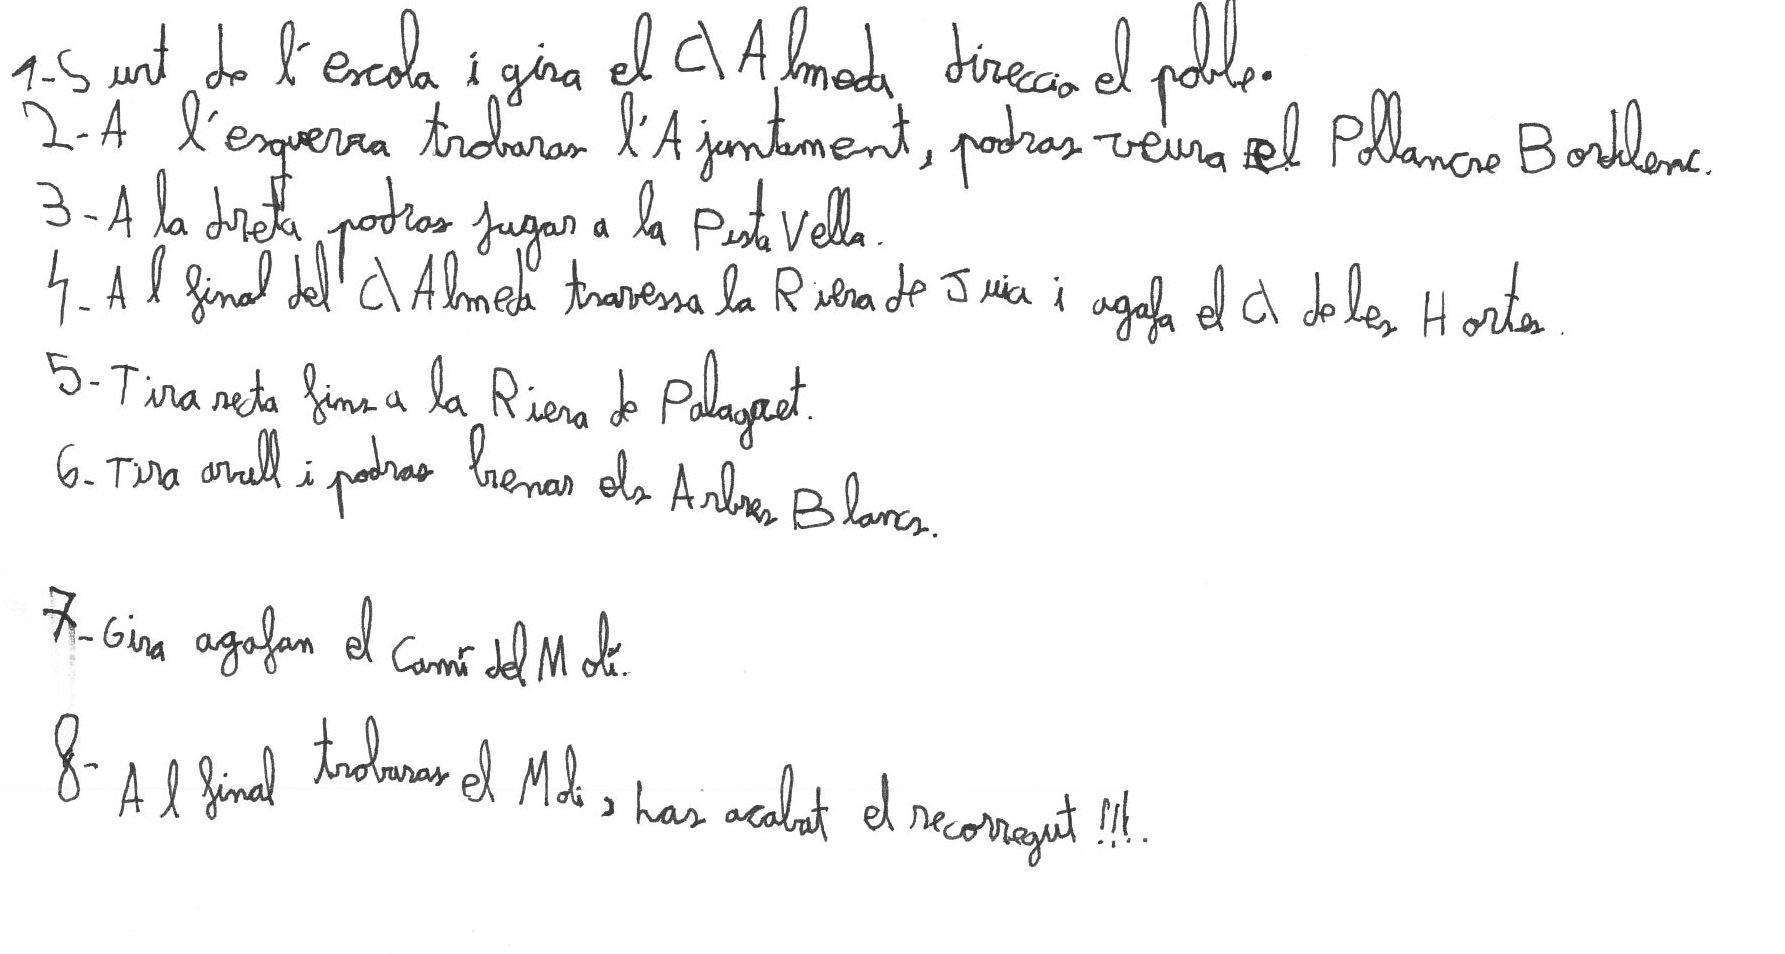 1-Surt de l'escola i gira el C\ Almeda direccio el poble.
2-A l'esquerra trobaras l'Ajuntament, podras veura el Pollancre Bordilenc.
3-A la dreta podras jugar a la Pista Vella.
4-Al final del C\ Almeda travessa la Riera de Juia i agafa el C\ de les Hortes.
5-Tira recta fins a la Riera de Palagret.
6-Tira avall i podras brenar els Arbres Blancs.
7-Gira agafan el Camí del Molí.
8-Al final trobaras el Moli, has acabat el recorregut!!!.